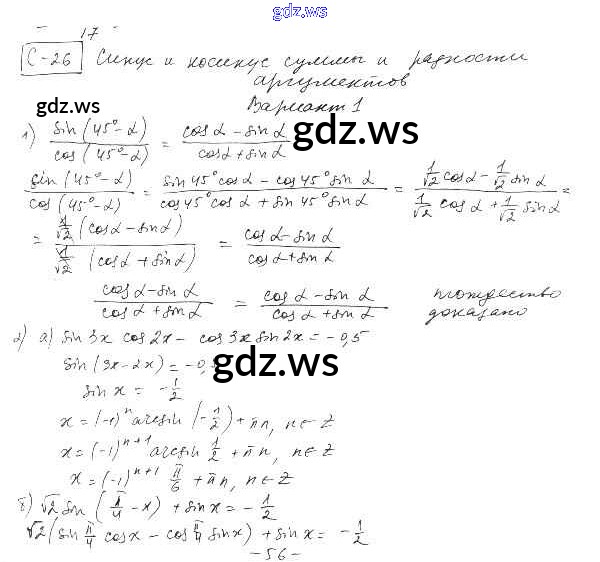 gdz.ws
17
С-26 Синус и косинус суммы и разности
аргументов
gdz.ws
Вариант 1
gdz.ws
1) sin(45°-α) / cos(45°-α) = cos α - sin α / cos α + sin α
sin(45°-α) / cos(45°-α) = sin 45° cos α - cos 45° sin α / cos 45° cos α + sin 45° sin α = 1/√2 cos α - 1/√2 sin α / 1/√2 cos α + 1/√2 sin α =
= 1/√2 (cos α - sin α) / 1/√2 (cos α + sin α) = cos α - sin α / cos α + sin α
cos α - sin α / cos α + sin α = cos α - sin α / cos α + sin α тождество
доказано
2) а) sin 3x cos 2x - cos 3x sin 2x = -0,5
sin(3x-2x) = -0,5
gdz.ws
sin x = -1/2
x = (-1)ⁿ arcsin(-1/2) + πn, n∈Z
x = (-1)ⁿ⁺¹ arcsin 1/2 + πn, n∈Z
x = (-1)ⁿ⁺¹ π/6 + πn, n∈Z
б) √2 sin(π/4 - x) + sin x = -1/2
√2(sin π/4 cos x - cos π/4 sin x) + sin x = -1/2
-56-
gdz.ws